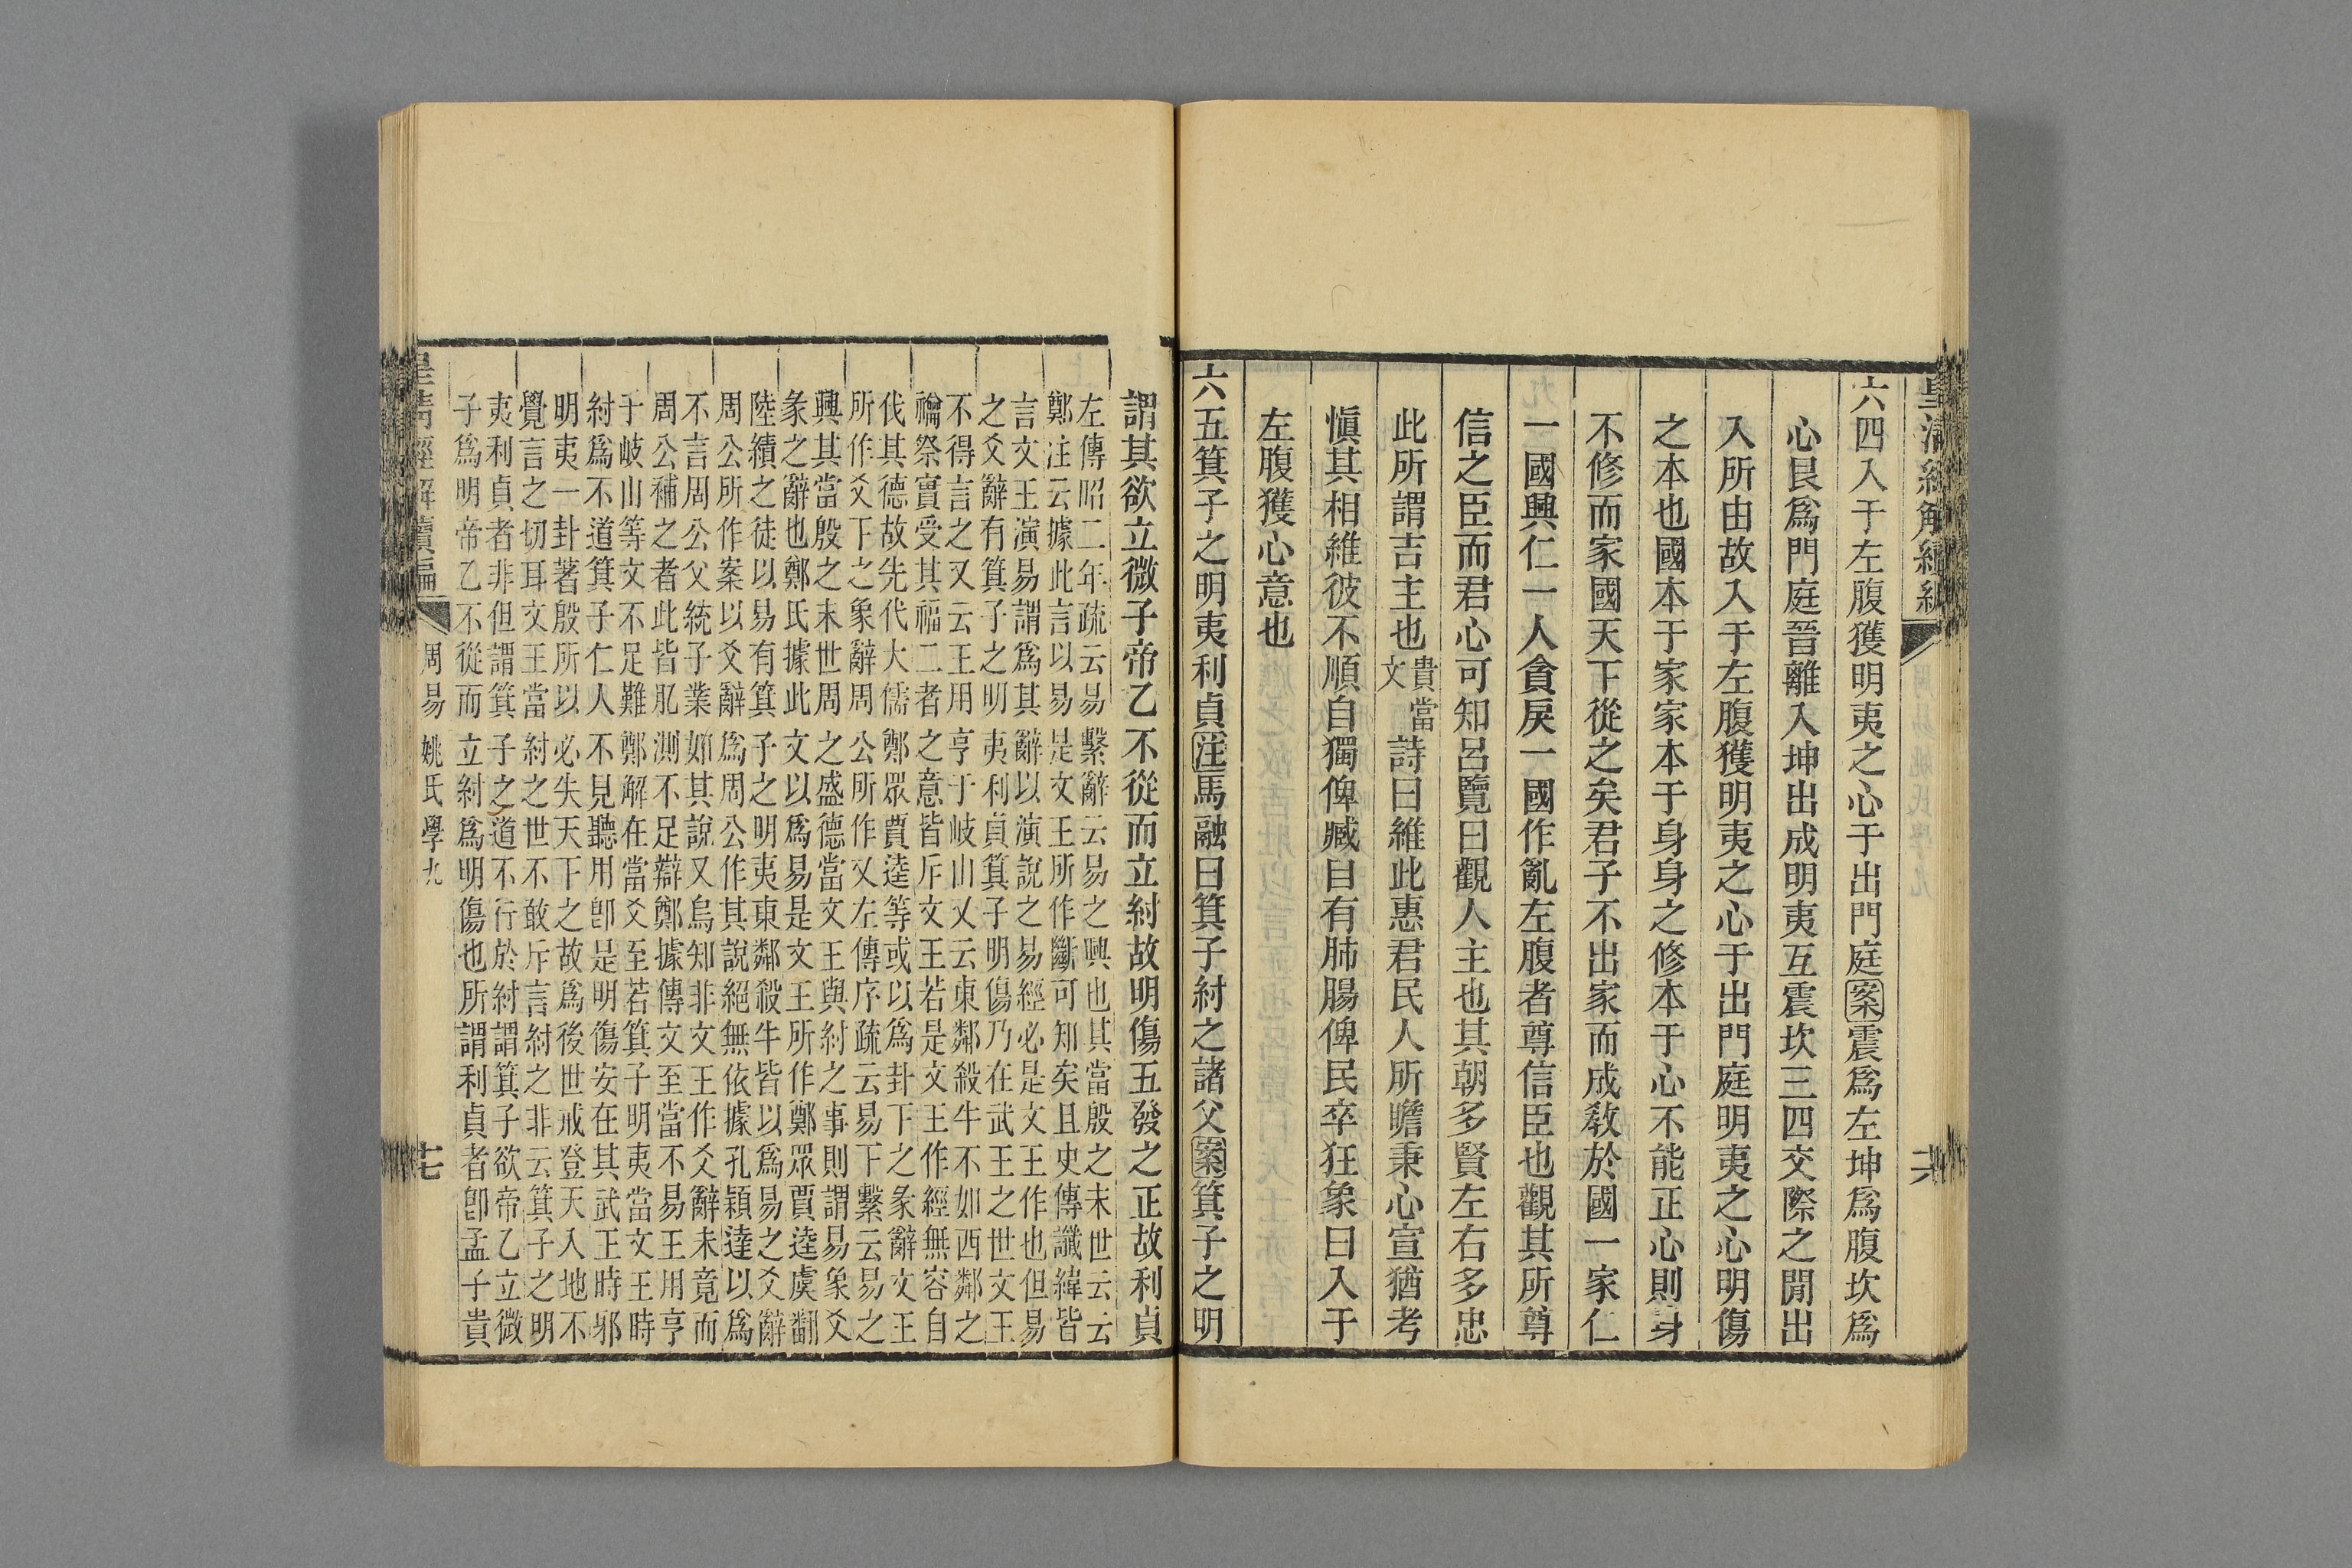 皇清經解續編
六四入于左腹獲明夷之心于出門庭案震爲左坤爲腹坎爲
心艮爲門庭晉離入坤出成明夷互震坎三四交際之閒出
入所由故入于左腹獲明夷之心于出門庭明夷之心明傷
之本也國本于家家本于身身之修本于心不能正心則身
不修而家國天下從之矣君子不出家而成敎於國一家仁
一國興仁一人貪戾一國作亂左腹者尊信臣也觀其所尊
信之臣而君心可知呂覽曰觀人主也其朝多賢左右多忠
此所謂吉主也貴當文詩曰維此惠君民人所瞻秉心宣猶考
愼其相維彼不順自獨俾臧自有肺腸俾民卒狂象曰入于
左腹獲心意也
六五箕子之明夷利貞注馬融曰箕子紂之諸父案箕子之明
謂其欲立微子帝乙不從而立紂故明傷五發之正故利貞
左傳昭二年疏云易繫辭云易之興也其當殷之末世云云
鄭注云據此言以易是文王所作斷可知矣且史傳讖緯皆
言文王演易謂爲其辭以演說之易經必是文王作也但易
之爻辭有箕子之明夷利貞箕子明傷乃在武王之世文王
不得言之又云王用亨于岐山又云東鄰殺牛不如西鄰之
禴祭實受其福二者之意皆斥文王若是文王作經無容自
伐其德故先代大儒鄭眾賈逵等或以爲卦下之彖辭文王
所作爻下之象辭周公所作又左傳序疏云易下繫云易之
興其當殷之末世周之盛德當文王與紂之事則謂易象爻
彖之辭也鄭氏據此文以爲易是文王所作鄭眾賈逵虞翻
陸績之徒以易有箕子之明夷東鄰殺牛皆以爲易之爻辭
周公所作案以爻辭爲周公作其說絕無依據孔穎達以爲
不言周公父統子業如其說又烏知非文王作爻辭未竟而
周公補之者此皆肊測不足辯鄭據傳文至當不易王用亨
于岐山等文不足難鄭解在當爻至若箕子明夷當文王時
紂爲不道箕子仁人不見聽用卽是明傷安在其武王時邪
明夷一卦著殷所以必失天下之故爲後世戒登天入地不
覺言之切耳文王當紂之世不敢斥言紂之非云箕子之明
夷利貞者非但謂箕子之道不行於紂謂箕子欲帝乙立微
子爲明帝乙不從而立紂爲明傷也所謂利貞者卽孟子貴
皇清經解續編 周易姚氏學九 十七